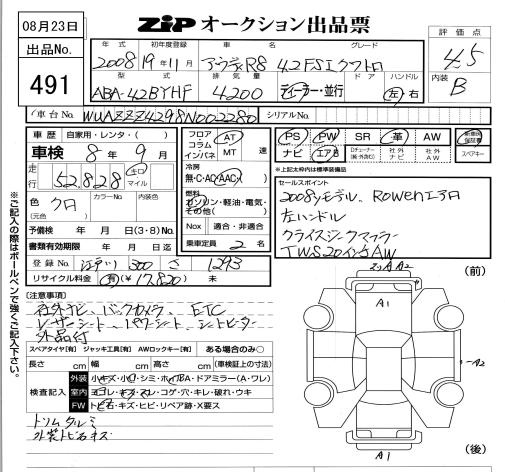 08月23日
ZiP オークション出品票
評価点
4.5
内装
B
出品No.
491
年式 初年度登録 車名 グレード
2008 19年11月 アウディR8 4.2FSIクワトロ
型式 排気量 ドア ハンドル
ABA-42BYHF 4200 ディーラー・並行 左 右
車台No. WUAZZZ4298N002280 シリアルNo.
車歴 自家用・レンタ・( )
車検 8年 9月
走行 52,828 キロ マイル
色 クロ (元色) カラーNo. 内装色
予備検 年 月 日(3・8)No.
書類有効期限 年 月 日迄
登録No. 300 さ 1293
リサイクル料金 有(¥17,820) 未
フロア コラム インパネ AT MT 速
冷房
無・C・AC・AAC
燃料
ガソリン・軽油・電気・その他( )
Nox 適合・非適合
乗車定員 2 名
PS PW SR 革 AW
ナビ エアB Dチューナー(純・外含む) 社外ナビ 社外AW スペアキー
*上記太枠内は標準装備品
セールスポイント
2008yモデル、Rowenエアロ
左ハンドル
クライスジークマフラー
TWS20インチAW
※ご記入の際はボールペンで強くご記入下さい。
(注意事項)
社外ナビ、バックカメラ、ETC
レザーシート、パワーシート、シートヒーター
外品付
スペアタイヤ[有] ジャッキ工具[有] AWロックキー[有] ある場合のみ○
長さ cm 幅 cm 高さ cm (車検証上の寸法)
検査記入
外装 小キズ・小凹・シミ・ホUBA・ドアミラー(A・ワレ)
室内 ヨゴレ・キズ・スレ・コゲ・穴・キレ・破れ・ウキ
FW トビ石・キズ・ヒビ・リペア跡・X要ス
トリムタルミ
外装トビ石キズ
(前)
A2
A1
A2
A1
(後)